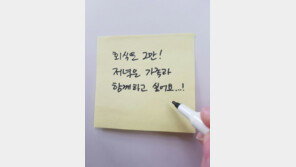 회식은 그만!
저녁은 가족과
함께하고 싶어요...!